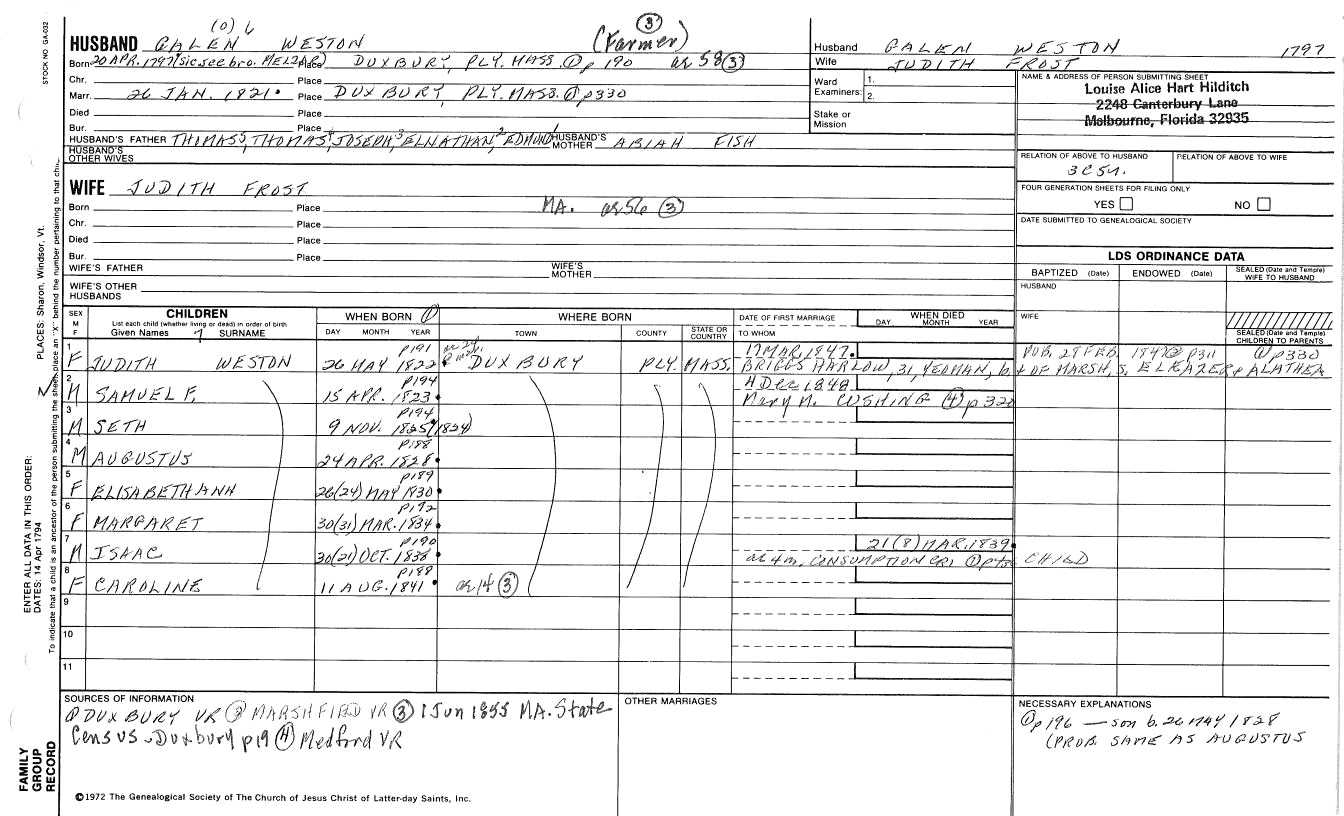 STOCK NO. GA-032
(0) 6
HUSBAND GALEN WESTON
(Farmer) ③
Born 20 APR. 1797 (sic, see bro. MELZAR) Place DUXBURY, PLY. MASS. ① p 190 ae 58 ③
Chr. Place
Marr. 26 JAN. 1821 Place DUXBURY, PLY. MASS. ① p330
Died Place
Bur. Place
HUSBAND'S FATHER THOMAS, THOMAS, JOSEPH, ELNATHAN, EDMUND HUSBAND'S MOTHER ABIAH FISH
HUSBAND'S OTHER WIVES
Husband GALEN WESTON 1797
Wife JUDITH FROST
Ward Examiners: 1. 2.
Stake or Mission
NAME & ADDRESS OF PERSON SUBMITTING SHEET
Louise Alice Hart Hilditch
2248 Canterbury Lane
Melbourne, Florida 32935
RELATION OF ABOVE TO HUSBAND RELATION OF ABOVE TO WIFE
FOUR GENERATION SHEETS FOR FILING ONLY
YES NO
DATE SUBMITTED TO GENEALOGICAL SOCIETY
WIFE JUDITH FROST
Born Place MA. ae 56 ③
Chr. Place
Died Place
Bur. Place
WIFE'S FATHER WIFE'S MOTHER
WIFE'S OTHER HUSBANDS
LDS ORDINANCE DATA
BAPTIZED (Date) ENDOWED (Date) SEALED (Date and Temple) WIFE TO HUSBAND
HUSBAND
WIFE
SEALED (Date and Temple) CHILDREN TO PARENTS
SEX M F
CHILDREN
List each child (whether living or dead) in order of birth
Given Names SURNAME
WHEN BORN ①
DAY MONTH YEAR
WHERE BORN
TOWN COUNTY STATE OR COUNTRY
DATE OF FIRST MARRIAGE
TO WHOM
WHEN DIED
DAY MONTH YEAR
1 F JUDITH WESTON p191 26 MAY 1822 DUXBURY PLY. MASS. 17 MAR. 1847. PUB. 28 FEB. 1847 ② p311 ① p330
BRIGGS HARLOW, 31, YEOMAN, b. + OF MARSH, S. ELEAZER & ALATHEA
2 M SAMUEL F. p194 15 APR. 1823 4 Dec 1848
Mary M. CUSHING ④ p320
3 M SETH p194 9 NOV. 1825 (1824)
4 M AUGUSTUS p188 24 APR. 1828
5 F ELISABETH ANN p189 26(24) MAY 1830
6 F MARGARET p192 30(31) MAR. 1834
7 M ISAAC p190 30(21) OCT. 1838 21 (8) MAR. 1839
ae 4m, CONSUMPTION CHILD
8 F CAROLINE p188 11 AUG. 1841 ae 14 ③
9
10
11
SOURCES OF INFORMATION
① DUXBURY VR ② MARSHFIELD VR ③ 1 Jun 1855 MA. State
Census - Duxbury p19 ④ Medford VR
OTHER MARRIAGES
NECESSARY EXPLANATIONS
① p196 — son b. 26 MAY 1828
(PROB. SAME AS AUGUSTUS
©1972 The Genealogical Society of The Church of Jesus Christ of Latter-day Saints, Inc.
ENTER ALL DATA IN THIS ORDER:
DATES: 14 Apr 1794
PLACES: Sharon, Windsor, Vt.
To indicate that a child is an ancestor of the person submitting the sheet, place an "X" behind the number pertaining to that
FAMILY GROUP RECORD